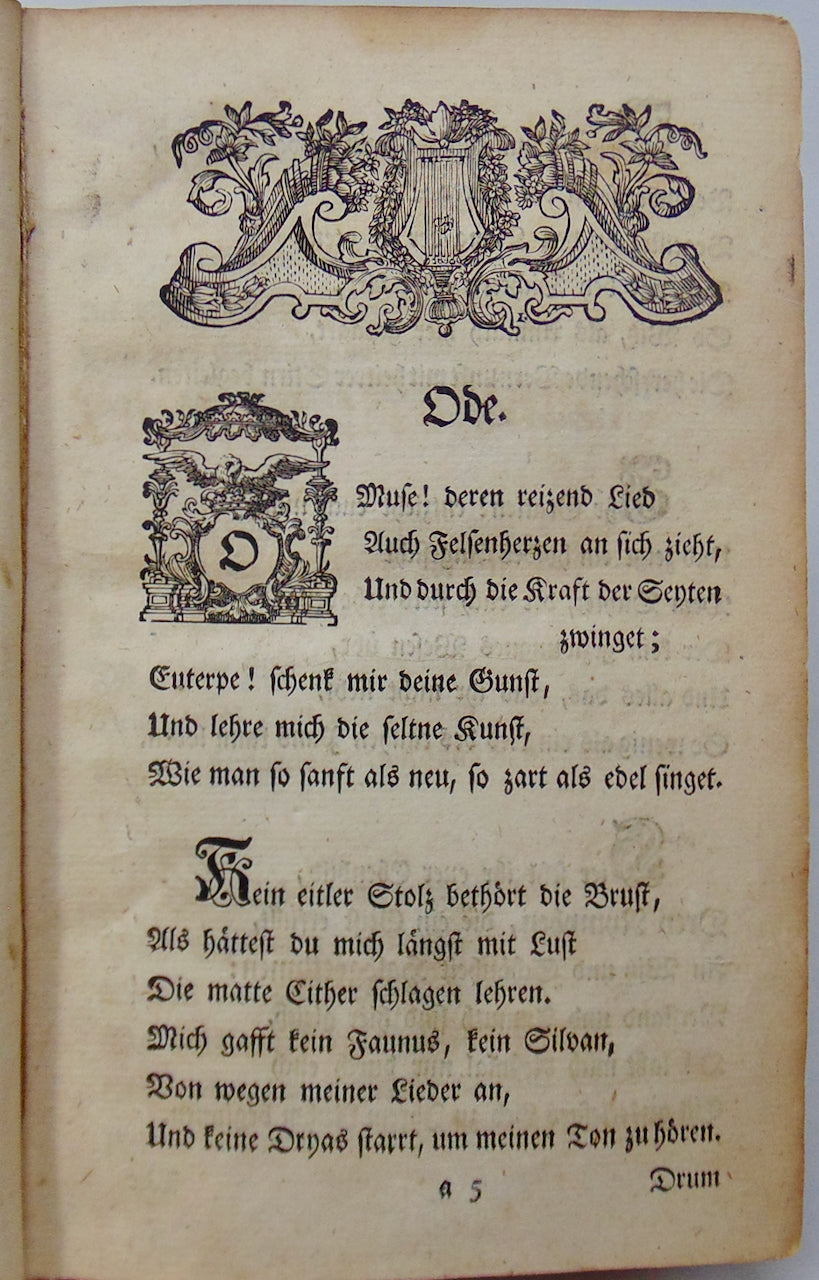 Ode.
O Muse! deren reizend Lied
Auch Felsenherzen an sich zieht,
Und durch die Kraft der Seyten
zwinget;
Euterpe! schenk mir deine Gunst,
Und lehre mich die seltne Kunst,
Wie man so sanft als neu, so zart als edel singet.
Kein eitler Stolz bethört die Brust,
Als hättest du mich längst mit Lust
Die matte Cither schlagen lehren.
Mich gafft kein Faunus, kein Silvan,
Von wegen meiner Lieder an,
Und keine Dryas starrt, um meinen Ton zu hören.
a 5
Drum